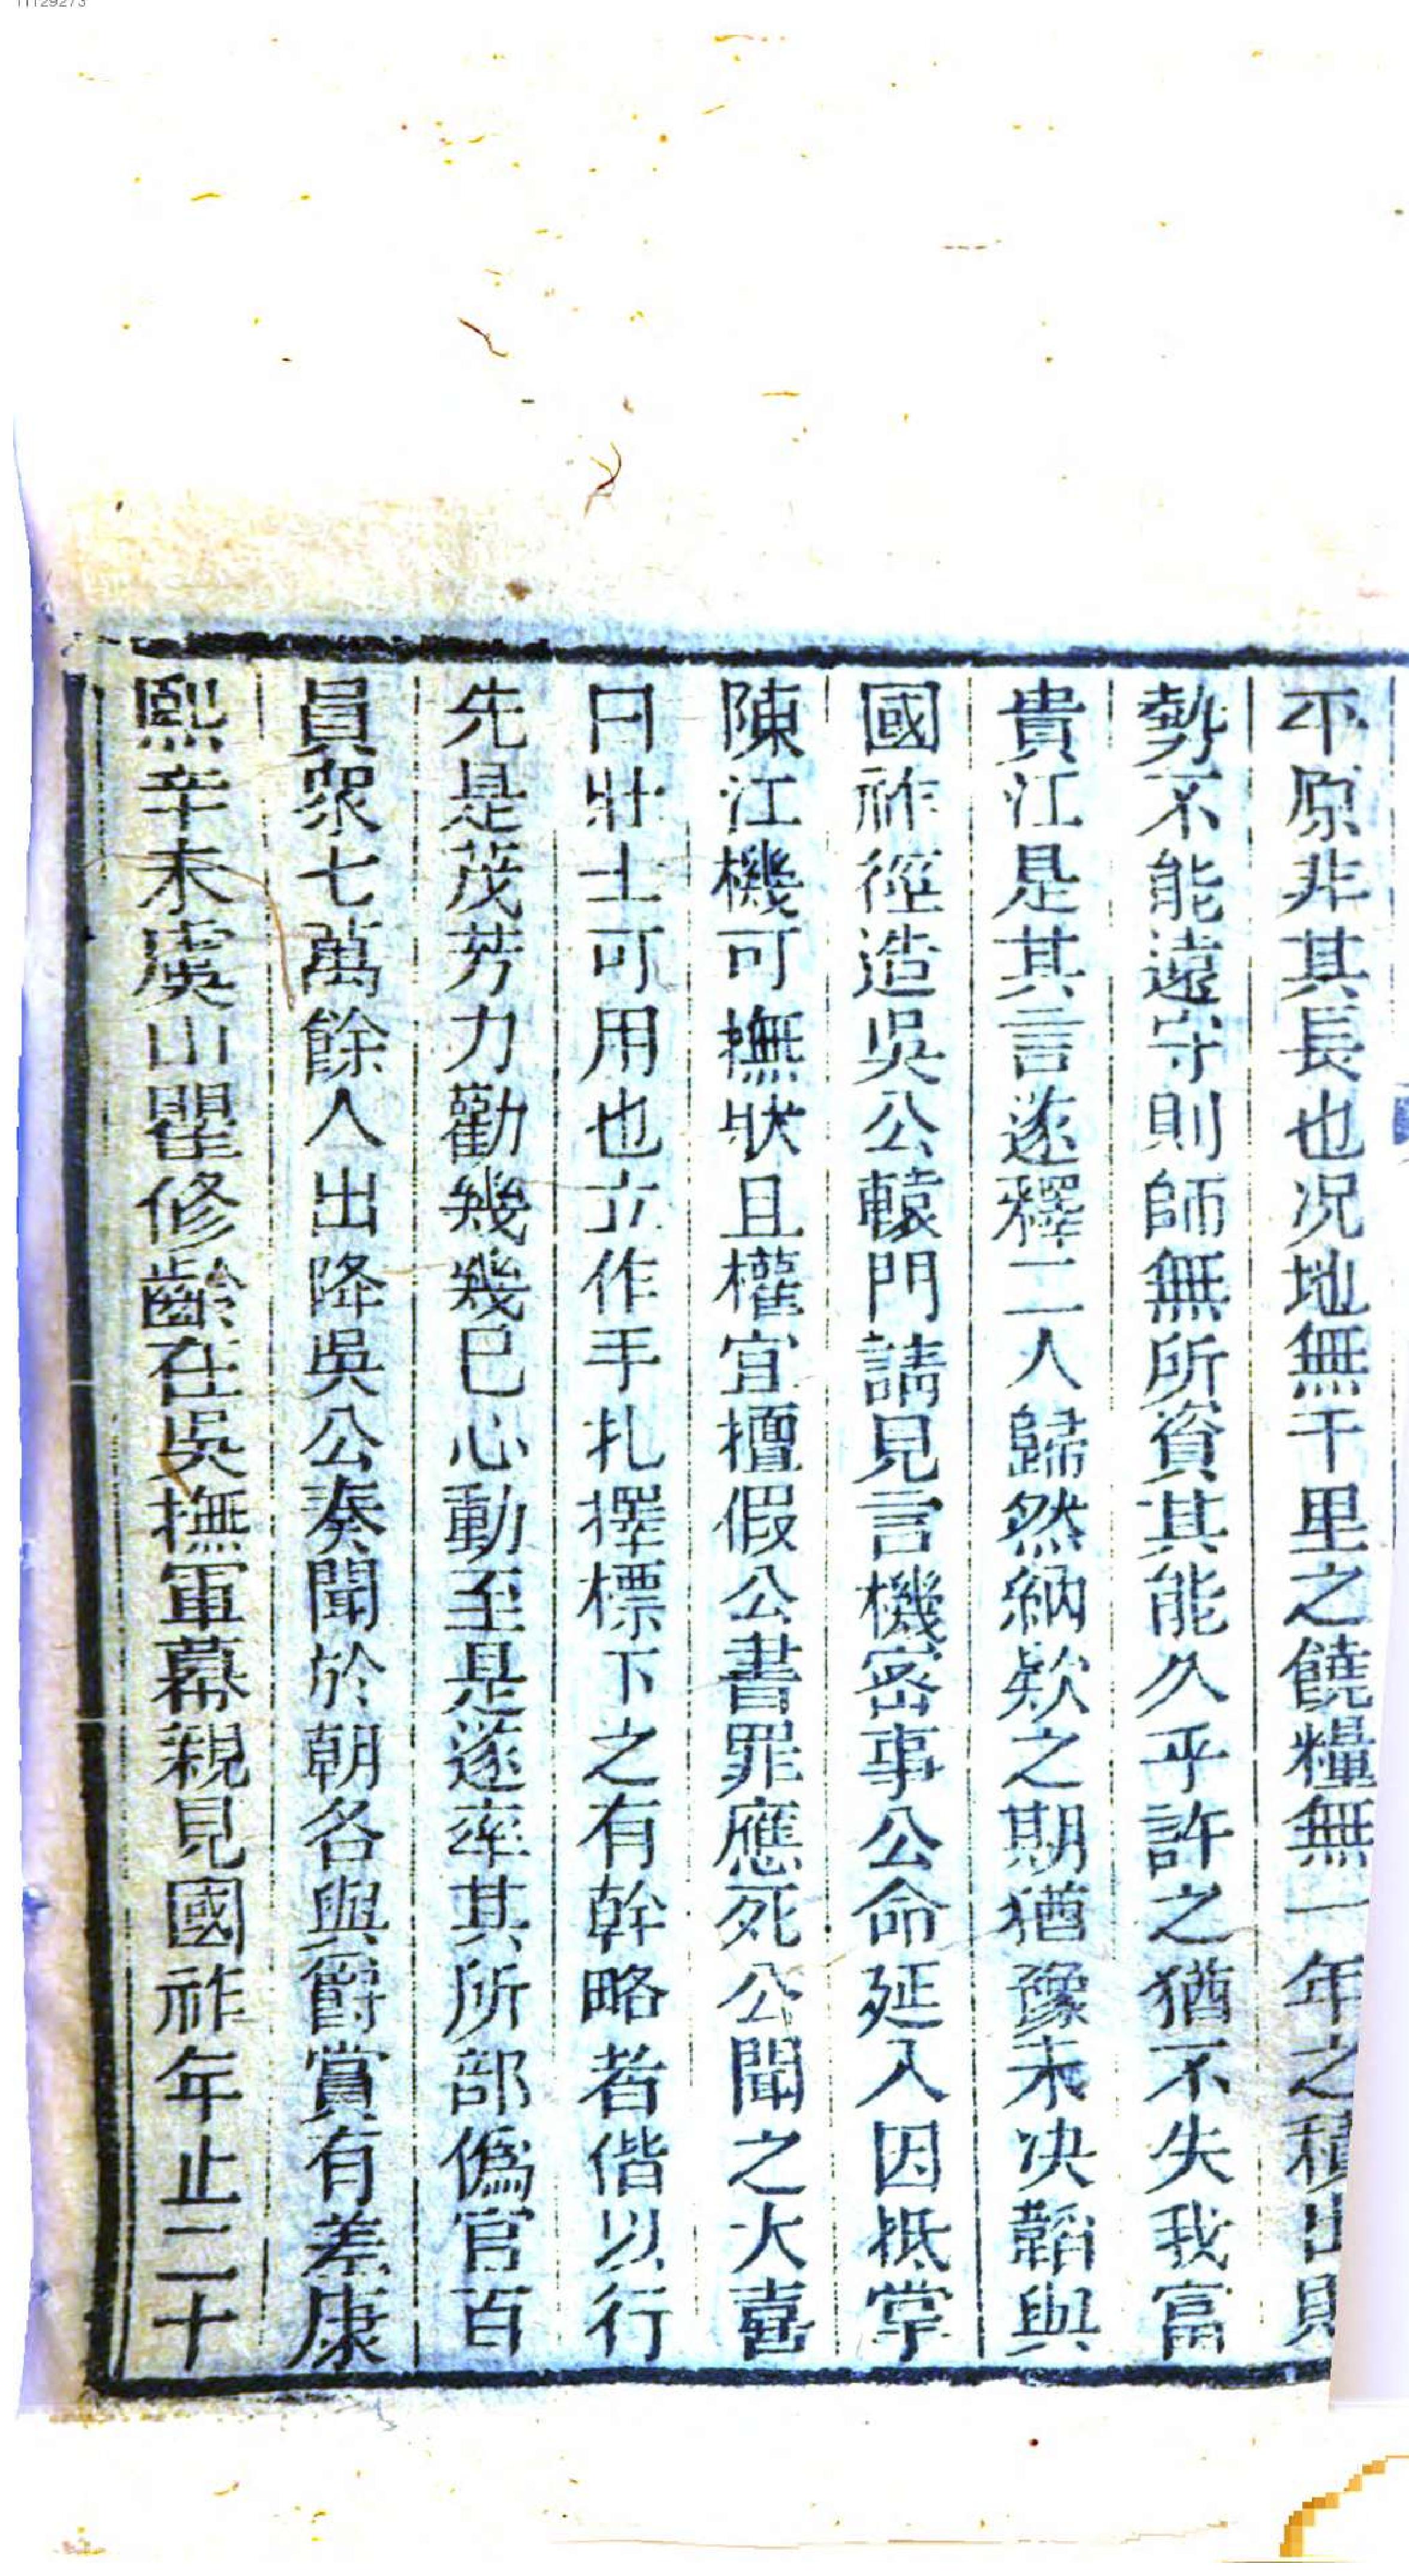 11129273
平原非其長也况地無千里之饒糧無一年之積出則
勢不能遠守則師無所資其能久乎許之猶不失我富
貴江是其言遂釋二人歸然納欵之期猶豫未决韜與
國祚徑造吳公轅門請見言機密事公命延入因抵掌
陳江機可撫狀且權宜擅假公書罪應死公聞之大喜
曰壯士可用也立作手札擇標下之有幹略者偕以行
先是茂芳力勸幾幾已心動至是遂率其所部偽官百
員衆七萬餘人出降吳公奏聞於朝各與爵賞有差康
熙辛未虞山瞿修齡在吳撫軍幕親見國祚年止二十